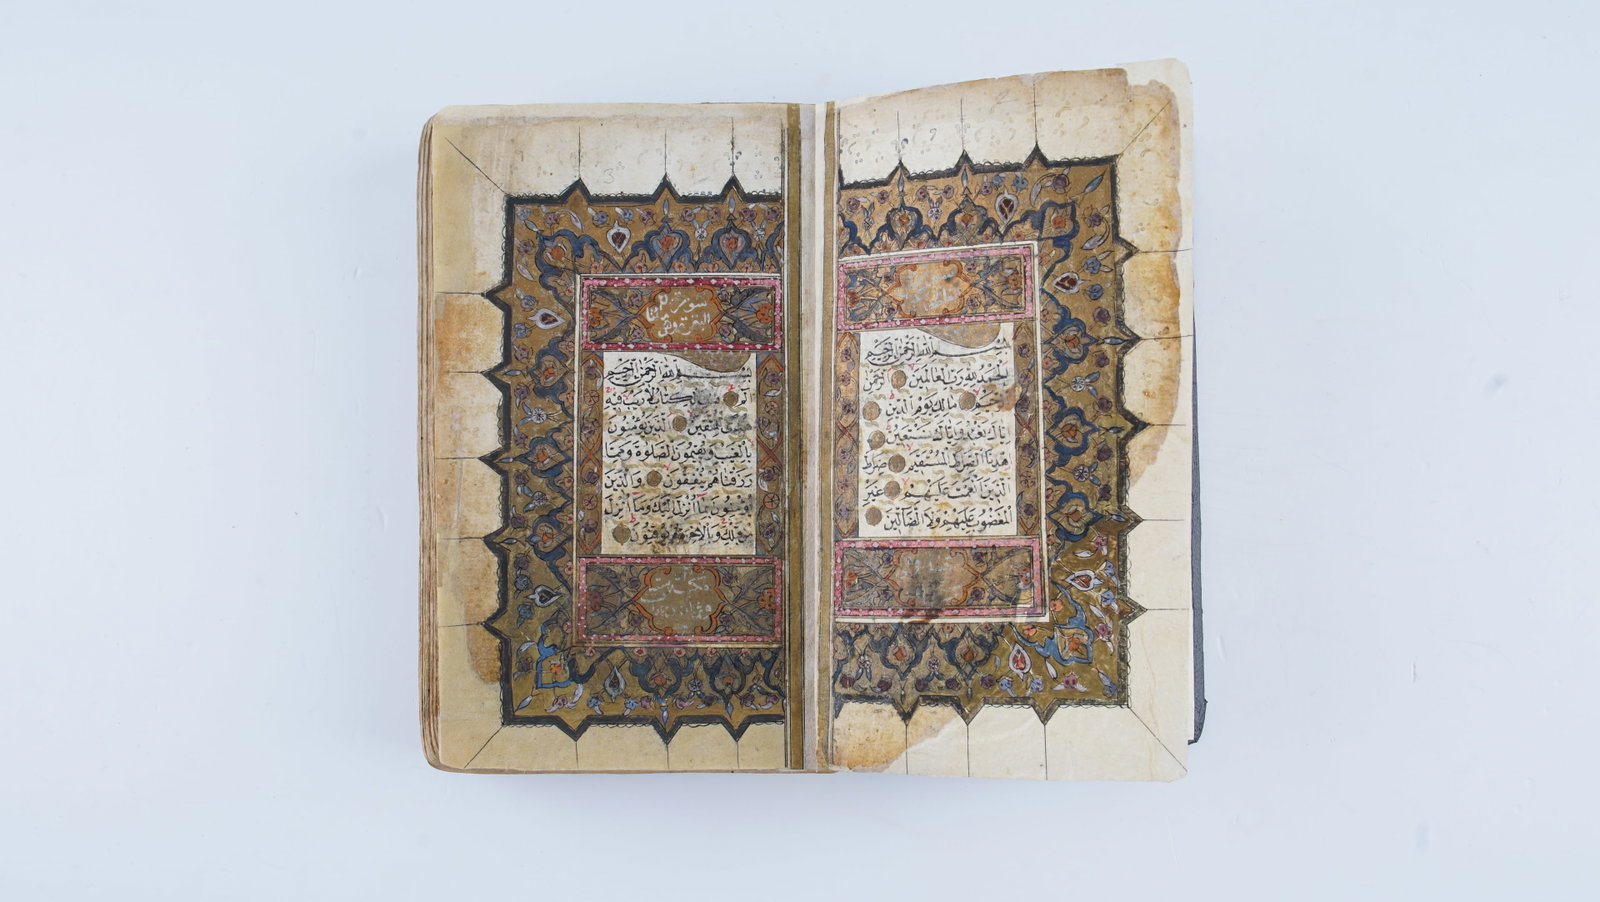 بسم الله الرحمن الرحيم
الحمد لله رب العالمين الرحمن
الرحيم مالك يوم الدين
اياك نعبد واياك نستعين
اهدنا الصراط المستقيم صراط
الذين انعمت عليهم غير
المغضوب عليهم ولا الضالين
سورة
البقرة وهى
بسم الله الرحمن الرحيم
الم ذلك الكتاب لا ريب فيه
هدى للمتقين الذين يؤمنون
بالغيب ويقيمون الصلوة ومما
رزقناهم ينفقون والذين
يؤمنون بما انزل اليك وما انزل
من قبلك وبالاخرة هم يوقنون